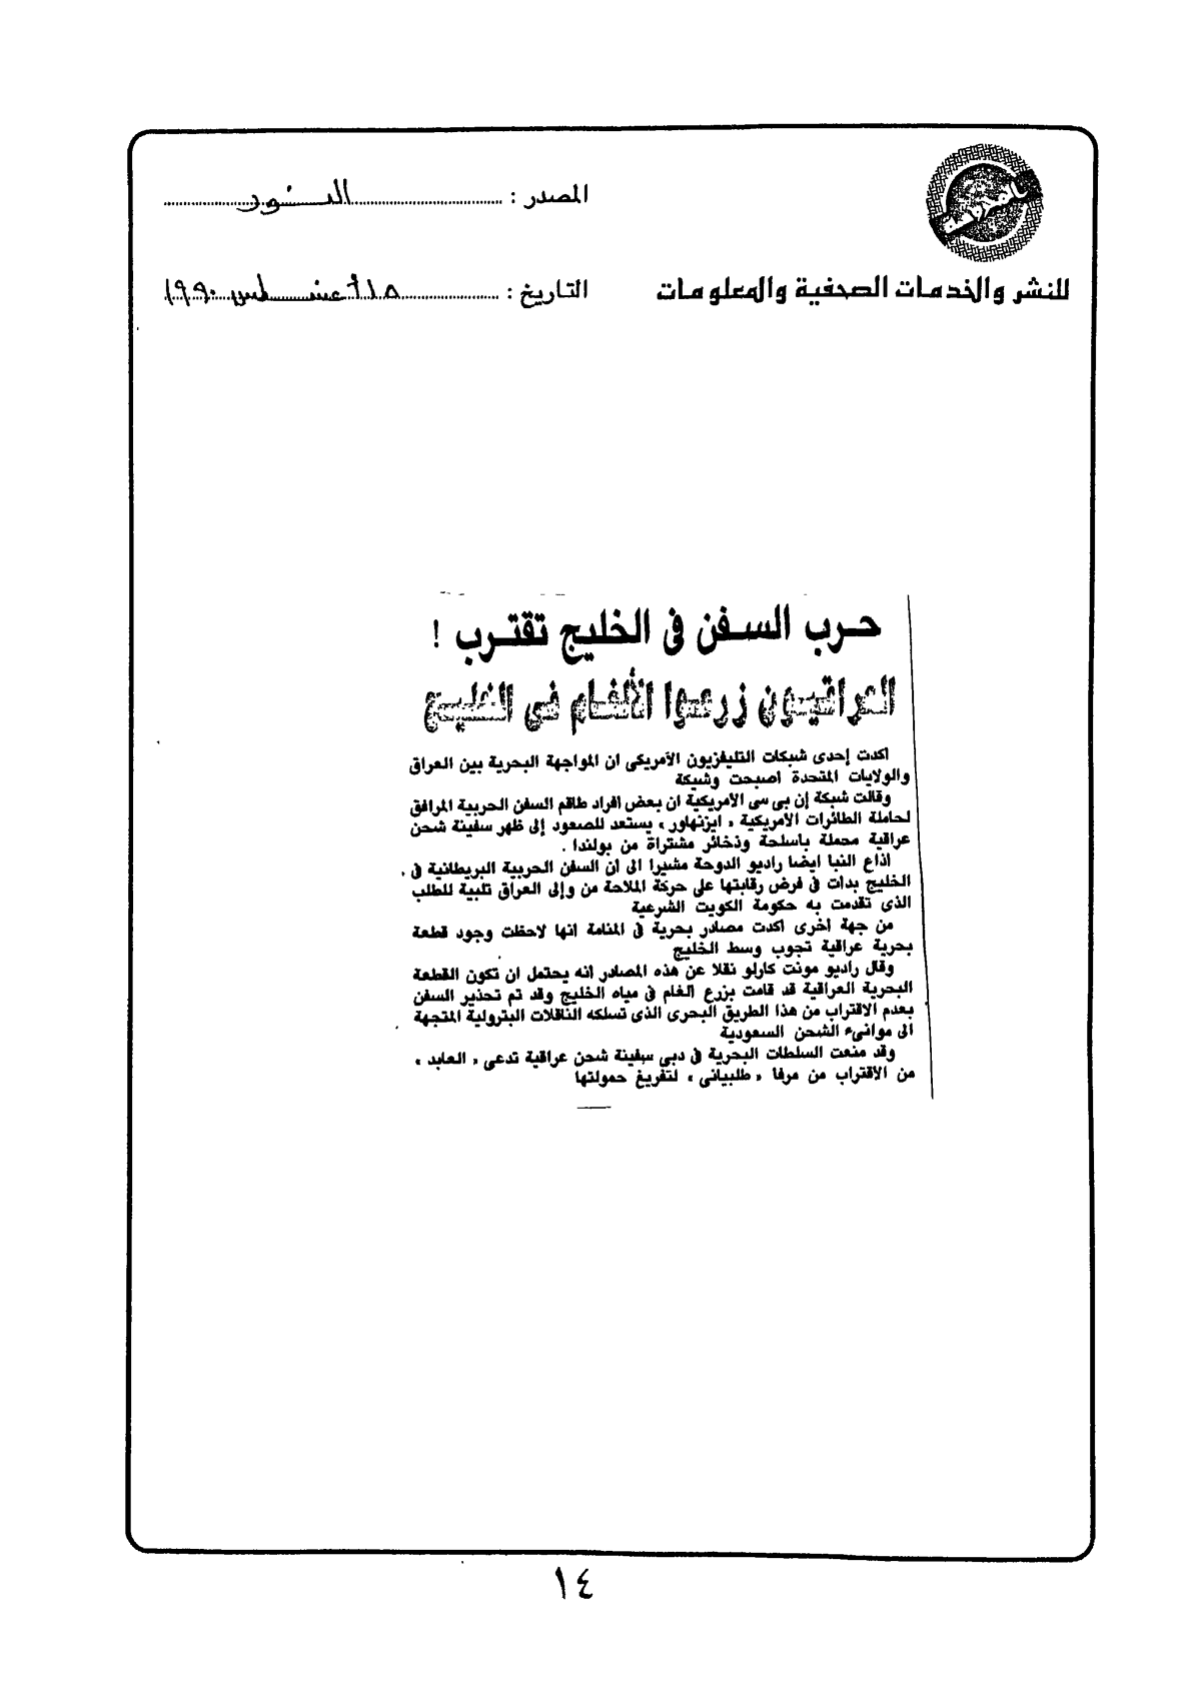 المصدر : النور
للنشر والخدمات الصحفية والمعلومات
التاريخ : ١٥ أغسطس ١٩٩٠
حرب السفن فى الخليج تقترب !
العراقيون زرعوا الألغام فى الخليج
اكدت إحدى شبكات التليفزيون الأمريكى ان المواجهة البحرية بين العراق
والولايات المتحدة اصبحت وشيكة
وقالت شبكة إن بى سى الأمريكية ان بعض افراد طاقم السفن الحربية المرافق
لحاملة الطائرات الأمريكية « ايزنهاور » يستعد للصعود إلى ظهر سفينة شحن
عراقية محملة باسلحة وذخائر مشتراة من بولندا .
اذاع النبا ايضا راديو الدوحة مشيرا الى ان السفن الحربية البريطانية فى
الخليج بدات فى فرض رقابتها على حركة الملاحة من وإلى العراق تلبية للطلب
الذى تقدمت به حكومة الكويت الشرعية
من جهة اخرى اكدت مصادر بحرية فى المنامة انها لاحظت وجود قطعة
بحرية عراقية تجوب وسط الخليج
وقال راديو مونت كارلو نقلا عن هذه المصادر انه يحتمل ان تكون القطعة
البحرية العراقية قد قامت بزرع الغام فى مياه الخليج وقد تم تحذير السفن
بعدم الاقتراب من هذا الطريق البحرى الذى تسلكه الناقلات البترولية المتجهة
الى موانىء الشحن السعودية
وقد منعت السلطات البحرية فى دبى سفينة شحن عراقية تدعى « العابد »
من الاقتراب من مرفا « طلبيانى » لتفريغ حمولتها
١٤